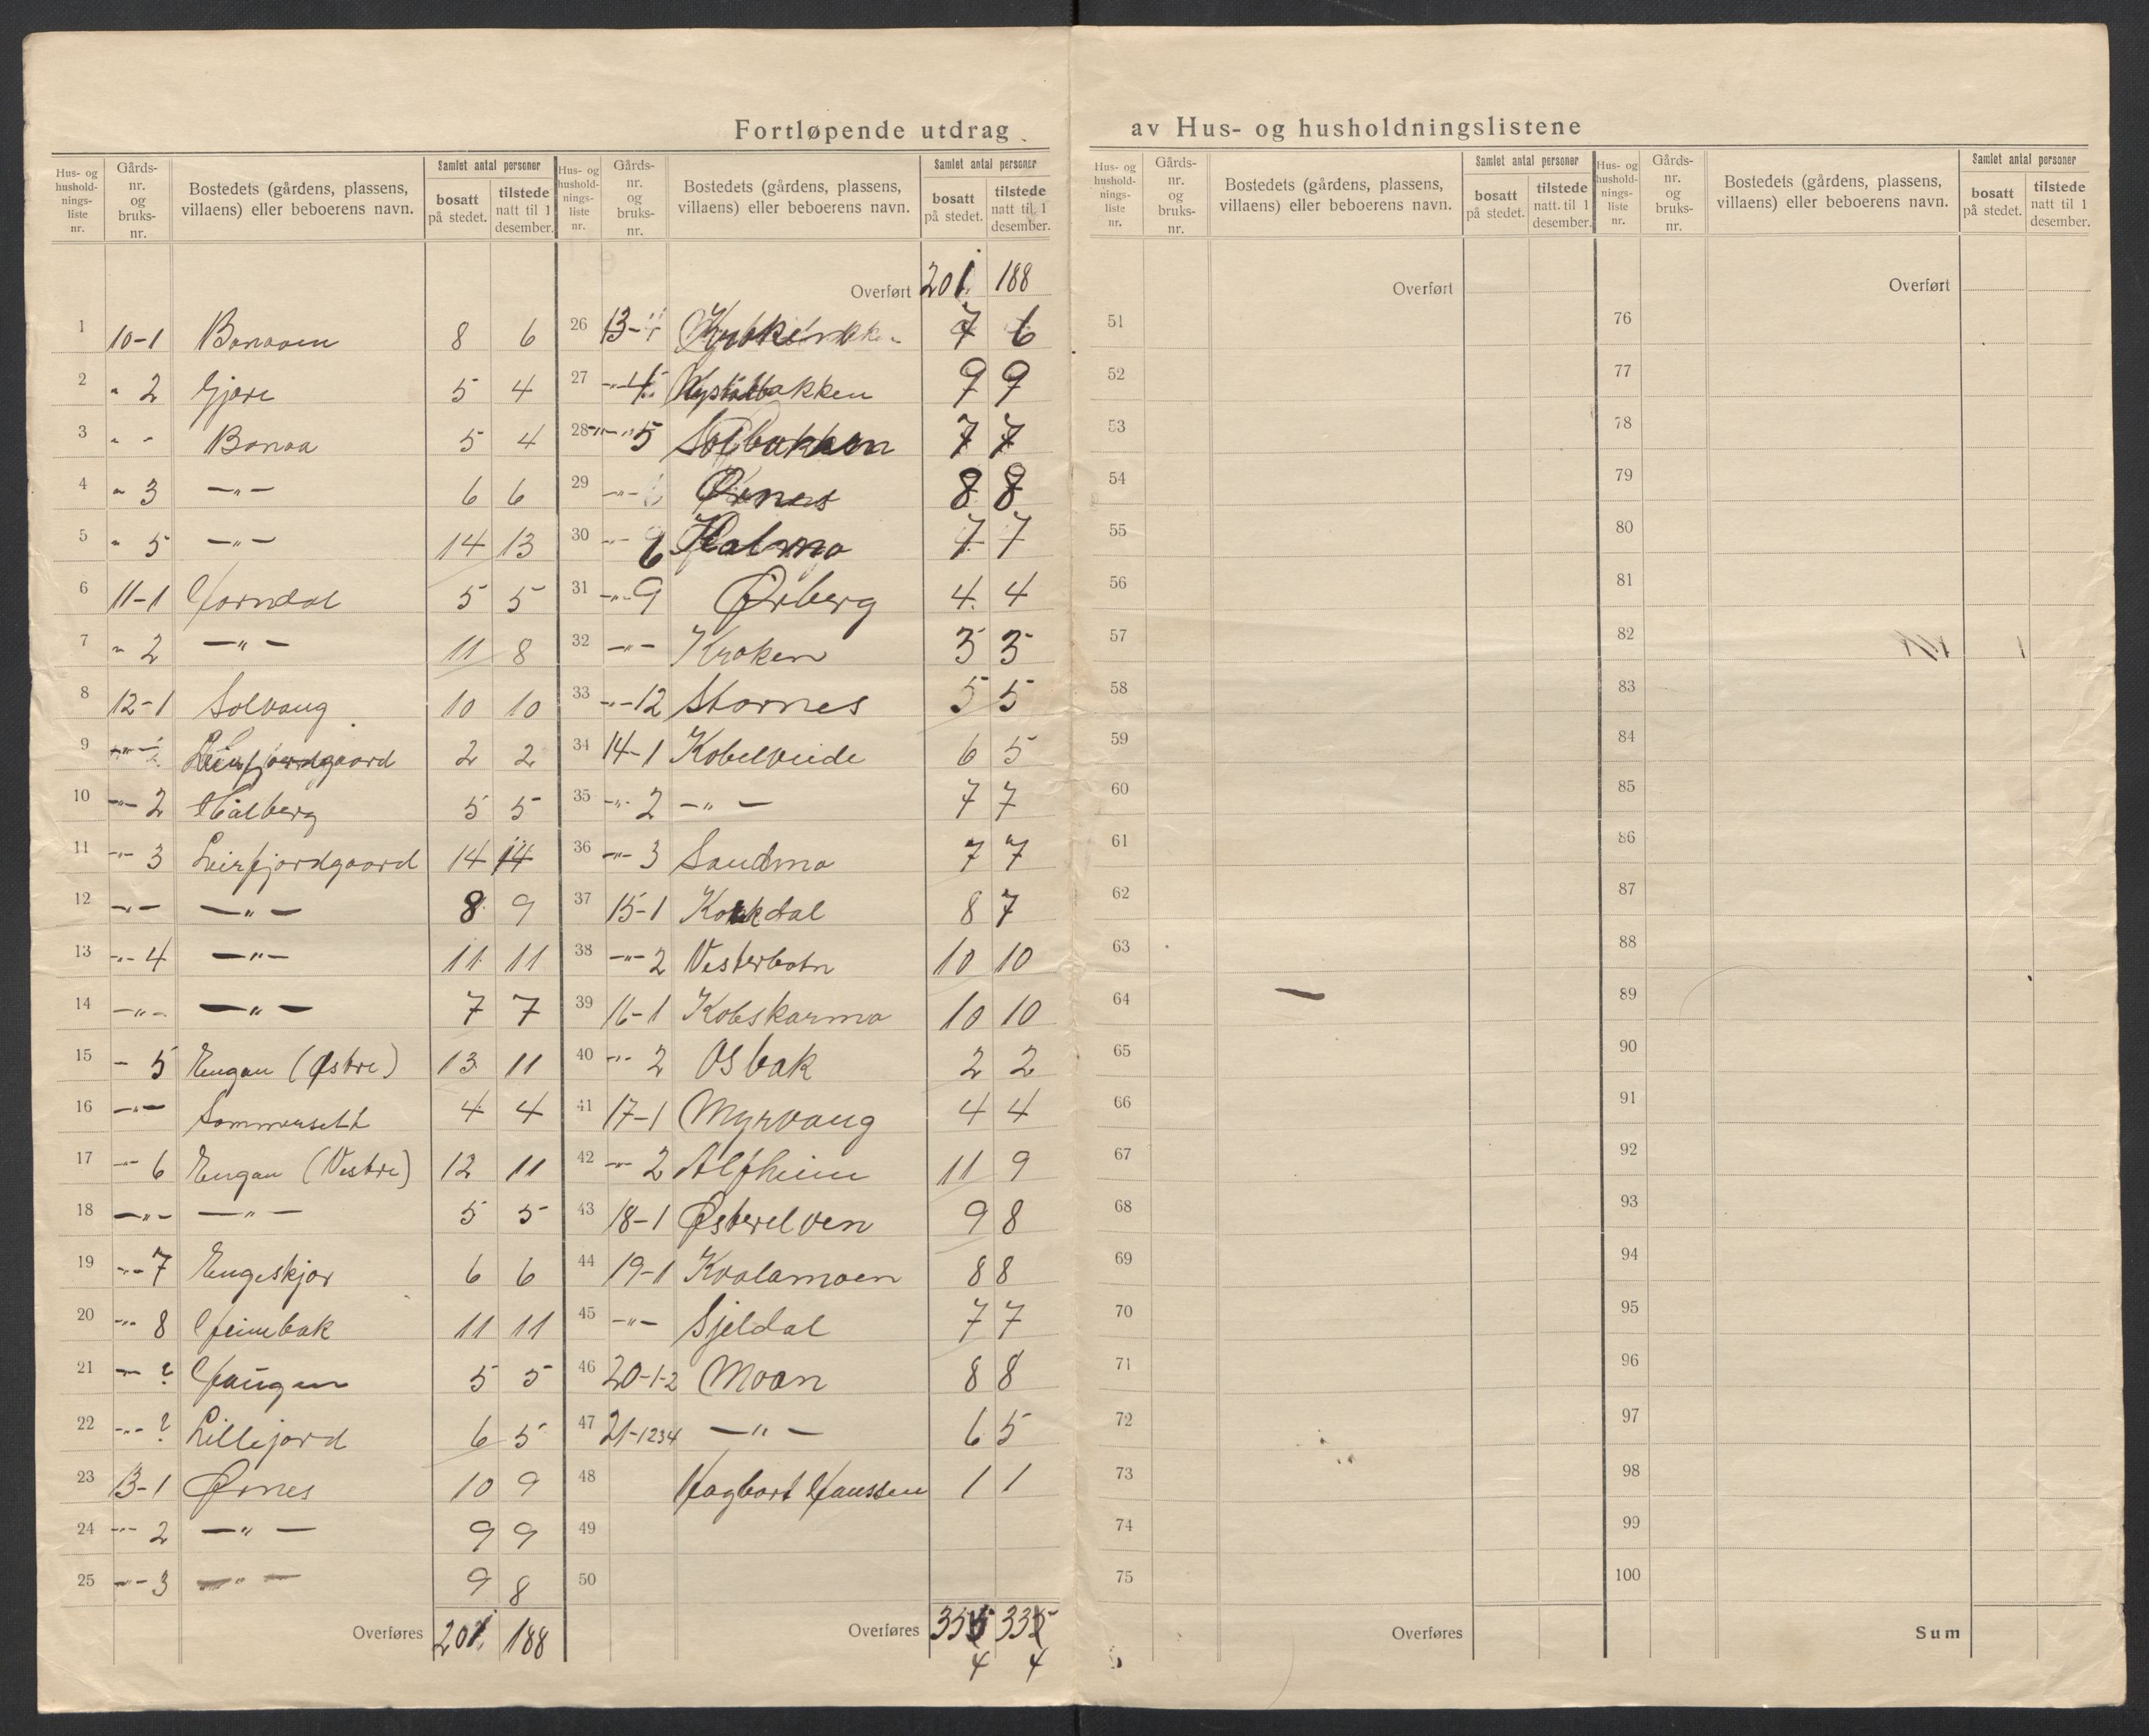 Fortløpende utdrag av Hus- og husholdningslistene
Hus- og hushold-nings-liste nr. Gårds-nr. og bruks-nr. Bostedets (gårdens, plassens, villaens) eller beboerens navn. Samlet antal personer bosatt på stedet. tilstede natt til 1 desember.
1 10-1 Bonaaen 8 6
2 " 2 Gjære 5 4
3 " - Bonaa 5 4
4 " 3 -"- 6 6
5 " 5 -"- 14 13
6 11-1 Horndal 5 5
7 " 2 -"- 11 8
8 12-1 Solvang 10 10
9 Leirfjordgaard 2 2
10 -"- 2 Hålberg 5 5
11 -"- 3 Leirfjordgaard 14 14
12 -"- -"- 8 9
13 -"- 4 -"- 11 11
14 -"- -"- 7 7
15 - 5 Engan (Østre) 13 11
16 -"- Sommersett 4 4
17 -"- 6 Engan (Vestre) 12 11
18 -"- -"- 5 5
19 -"- 7 Engeskjær 6 6
20 -"- 8 Heimbak 11 11
21 -"- ? Haugen 5 5
22 -"- ? Lillejord 6 5
23 13-1 Ørnes 10 9
24 -"- 2 -"- 9 9
25 -"- 3 -"- 9 8
Overføres 201 188
Hus- og hushold-nings-liste nr. Gårds-nr. og bruks-nr. Bostedets (gårdens, plassens, villaens) eller beboerens navn. Samlet antal personer bosatt på stedet. tilstede natt til 1 desember.
Overført 201 188
26 13-4 7 6
27 -"- 4 9 9
28 -"- 5 Solbakken 7 7
29 -"- Ørnes 8 8
30 -"- 6 Halmo 7 7
31 -"- 9 Ørberg 4 4
32 -"- Kroken 3 3
33 -"- 12 Stornes 5 5
34 14-1 Kobelveide 6 5
35 -"- 2 -"- 7 7
36 -"- 3 Sandmo 7 7
37 15-1 Kokdal 8 7
38 -"- 2 Vesterbotn 10 10
39 16-1 Kobskarmo 10 10
40 -"- 2 Osbak 2 2
41 17-1 Myrvang 4 4
42 -"- 2 Alfheim 11 9
43 18-1 Østerelven 9 8
44 19-1 Kvalamoen 8 8
45 -"- Gjeldal 7 7
46 20-1-2 Moan 8 8
47 21-1234 -"- 6 5
48 Hagbart Hanssen 1 1
49
50
Overføres 355 335
4 4
Hus- og hushold-nings-liste nr. Gårds-nr. og bruks-nr. Bostedets (gårdens, plassens, villaens) eller beboerens navn. Samlet antal personer bosatt på stedet. tilstede natt til 1 desember.
Overført
51
52
53
54
55
56
57
58
59
60
61
62
63
64
65
66
67
68
69
70
71
72
73
74
75
Overføres
Hus- og hushold-nings-liste nr. Gårds-nr. og bruks-nr. Bostedets (gårdens, plassens, villaens) eller beboerens navn. Samlet antal personer bosatt på stedet. tilstede natt til 1 desember.
Overført
76
77
78
79
80
81
82
83
84
85
86
87
88
89
90
91
92
93
94
95
96
97
98
99
100
Sum